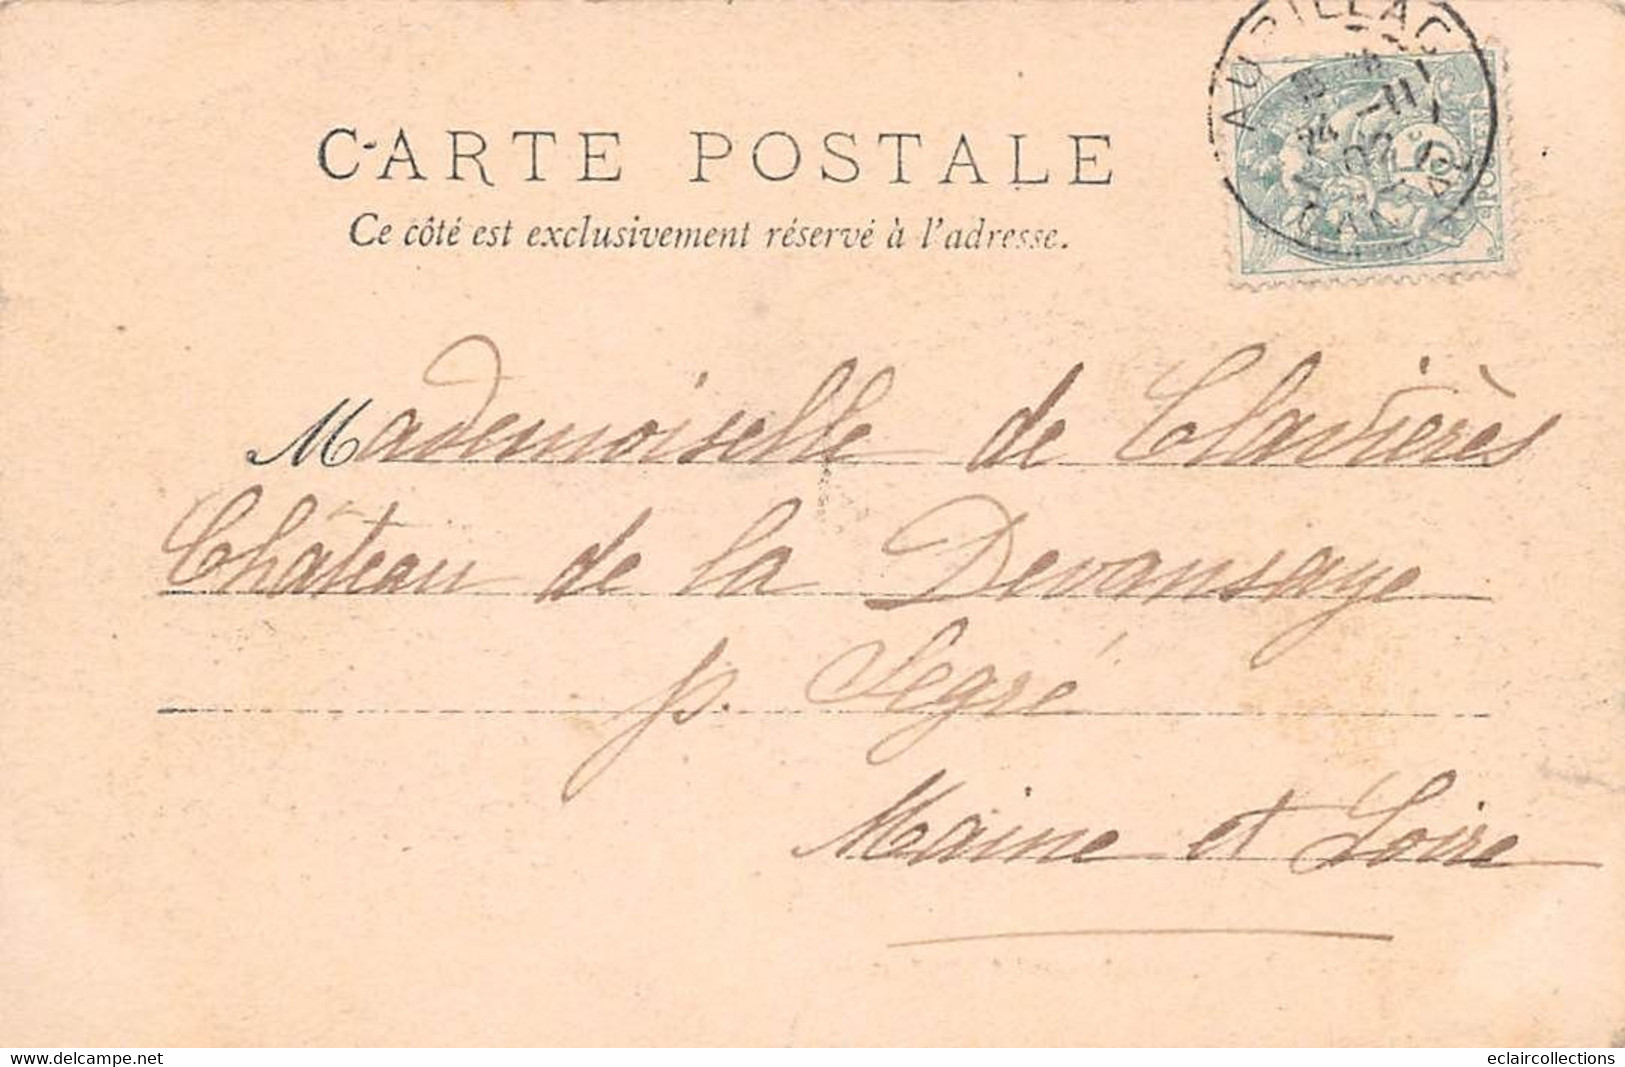 CARTE POSTALE
Ce côté est exclusivement réservé à l'adresse.
AURILLAC
24 -11
02
CANTAL
POSTES
Mademoiselle de Clavières
Château de la Devansaye
p. Segré
Maine et Loire
www.delcampe.net
eclaircollections